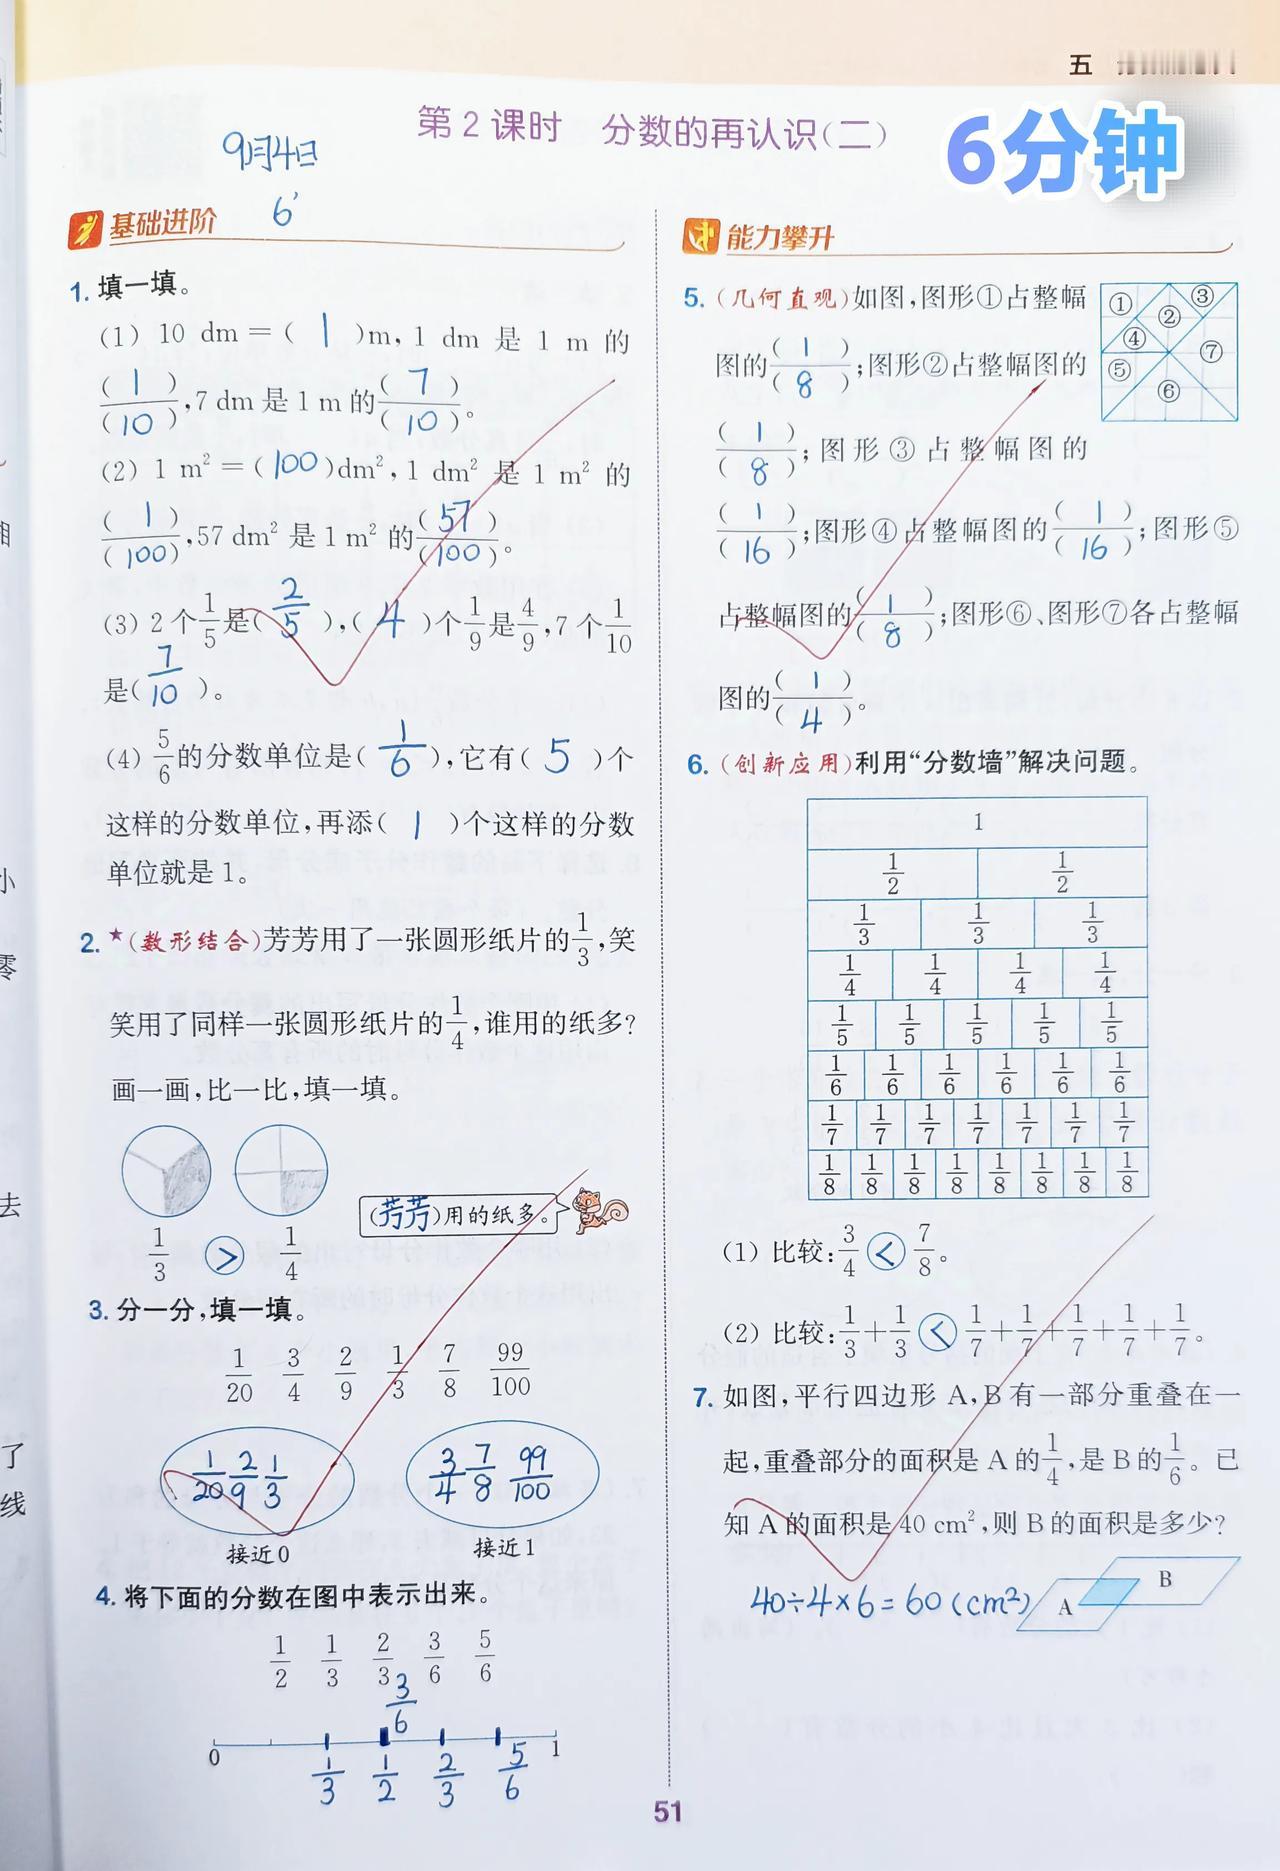 五
第2课时 分数的再认识(二)
6分钟
9月4日
6'
基础进阶
1. 填一填。
(1) 10 dm=( 1 )m, 1 dm 是 1 m 的
(1)/(10), 7 dm 是 1 m 的(7)/(10)。
(2) 1 m²=(100)dm², 1 dm² 是 1 m² 的
(1)/(100), 57 dm² 是 1 m² 的(57)/(100)。
(3) 2个1/5是( 2/5 ),( 4 )个1/9是4/9, 7个1/10
是( 7/10 )。
(4) 5/6的分数单位是( 1/6 ),它有( 5 )个
这样的分数单位,再添( 1 )个这样的分数
单位就是1。
2. ★(数形结合)芳芳用了一张圆形纸片的1/3,笑
笑用了同样一张圆形纸片的1/4,谁用的纸多?
画一画,比一比,填一填。
(芳芳)用的纸多。
1/3 > 1/4
3. 分一分,填一填。
1/20 3/4 2/9 1/3 7/8 99/100
1/20 2/9 1/3 3/4 7/8 99/100
接近0 接近1
4. 将下面的分数在图中表示出来。
1/2 1/3 2/3 3/6 5/6
3/6
0 1
1/3 1/2 2/3 5/6
能力攀升
5. (几何直观)如图,图形①占整幅
图的(1)/(8);图形②占整幅图的
(1)/(8);图形③占整幅图的
(1)/(16);图形④占整幅图的(1)/(16);图形⑤
占整幅图的(1)/(8);图形⑥、图形⑦各占整幅
图的(1)/(4)。
① ② ③
④ ⑤ ⑥ ⑦
6. (创新应用)利用“分数墙”解决问题。
1
1/2 1/2
1/3 1/3 1/3
1/4 1/4 1/4 1/4
1/5 1/5 1/5 1/5 1/5
1/6 1/6 1/6 1/6 1/6 1/6
1/7 1/7 1/7 1/7 1/7 1/7 1/7
1/8 1/8 1/8 1/8 1/8 1/8 1/8 1/8
(1) 比较:3/4 < 7/8。
(2) 比较:1/3+1/3 < 1/7+1/7+1/7+1/7+1/7。
7. 如图,平行四边形 A,B有一部分重叠在一
起,重叠部分的面积是 A 的1/4,是 B 的1/6。已
知 A 的面积是 40 cm²,则 B 的面积是多少?
40÷4×6=60(cm²)
A B
51
小
零
去
了
线